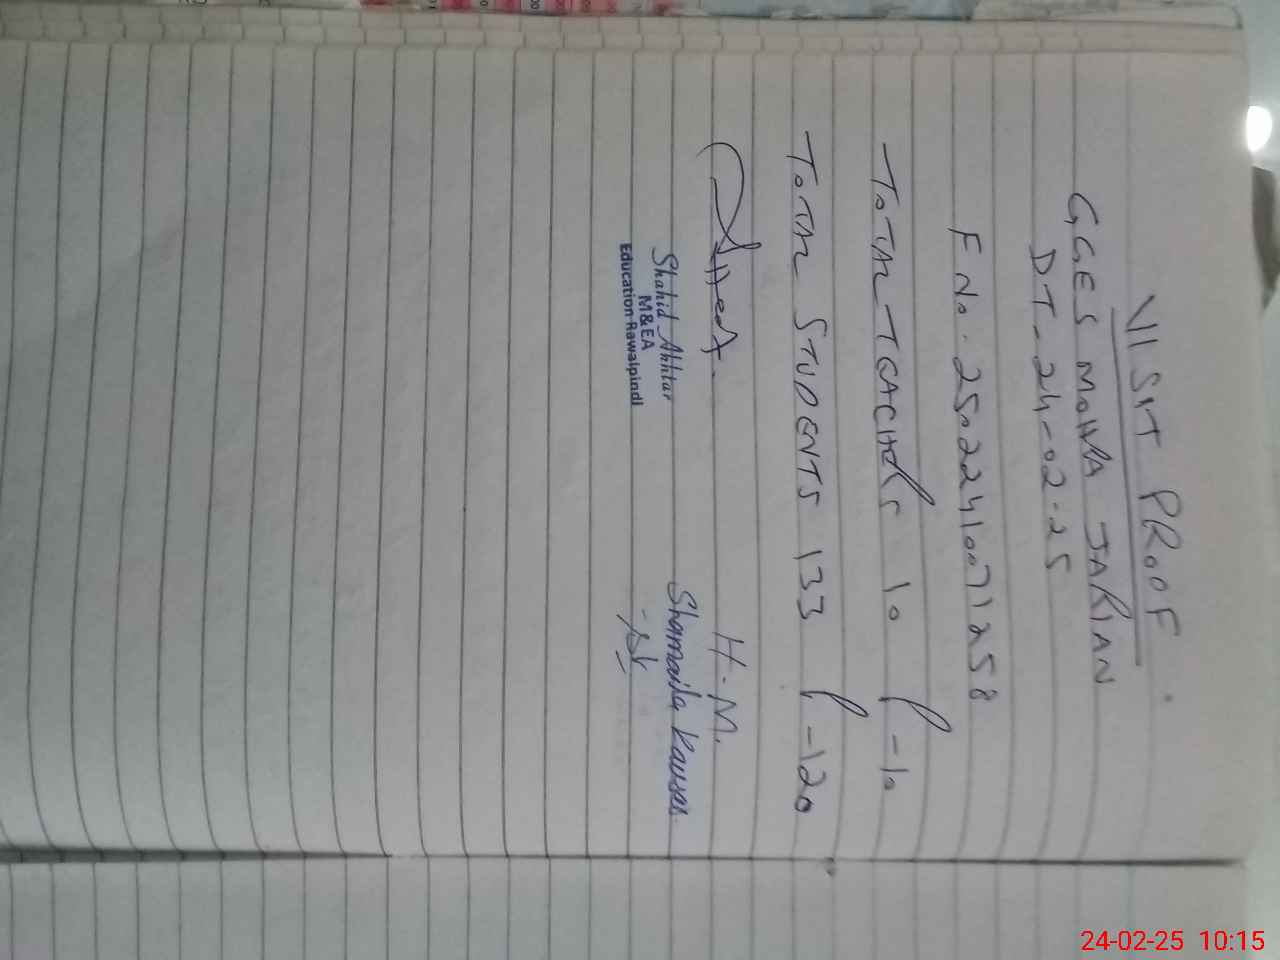 VISIT PROOF
GGES MOHRA JARIAN
DT-24-02-25
F No. 25022410071258
TOTAL TEACHERS 10 P-10
TOTAL STUDENTS 133 P-120
H.M.
Shahid Akhtar
M&EA
Education Rawalpindi
Shamaila Kausar
24-02-25 10:15